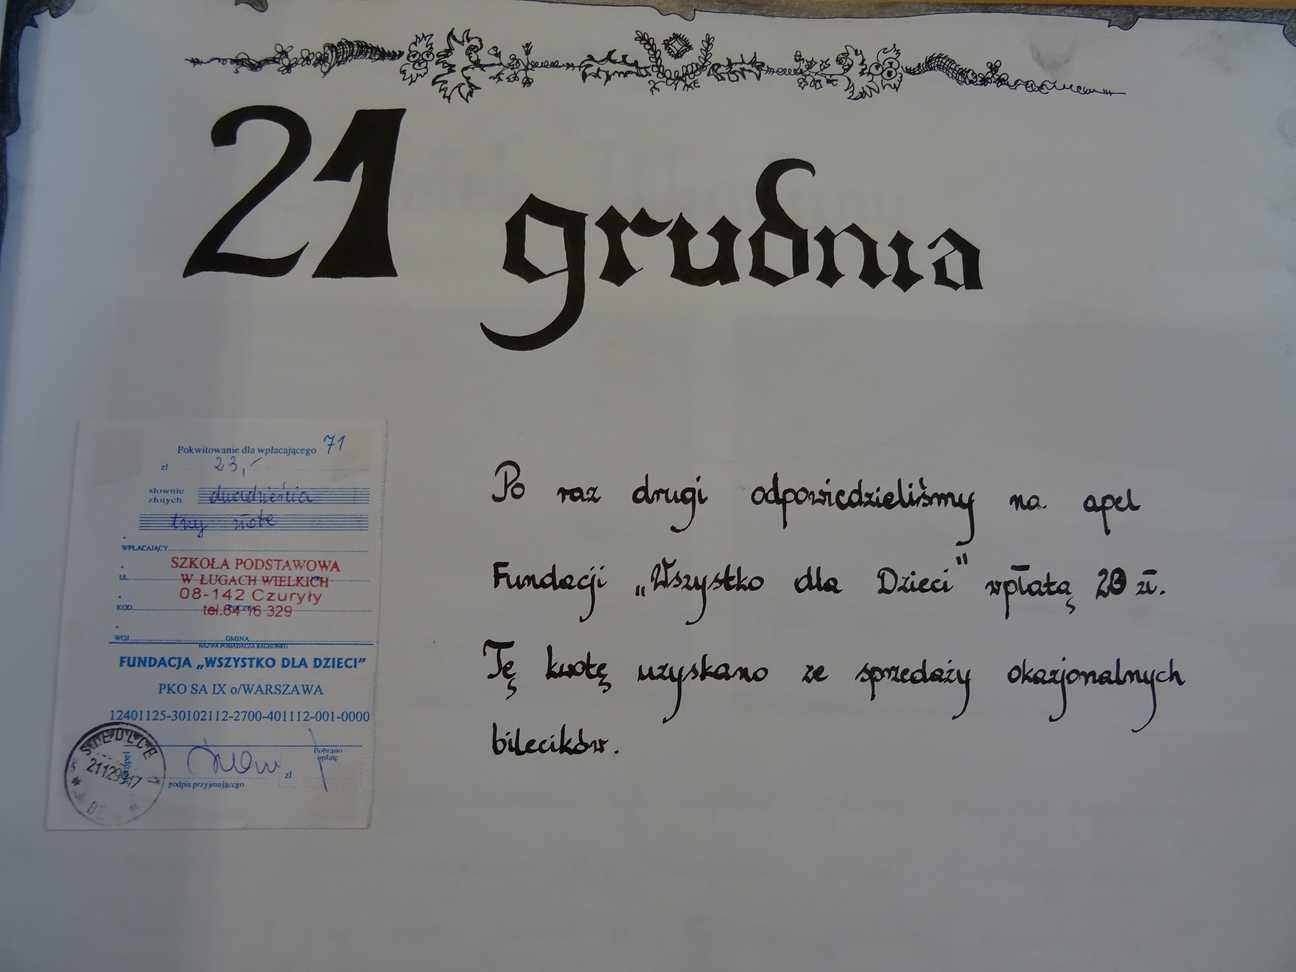 21 grudnia
Pokwitowanie dla wpłacającego 71
zł 23,-
słownie
złotych dwadzieścia
trzy złote
WPŁACAJĄCY
SZKOŁA PODSTAWOWA
UL. W ŁUGACH WIELKICH
08-142 Czuryły
KOD tel.64-16 329
WOJ. GMINA
NAZWA POSIADACZA RACHUNKU
FUNDACJA „WSZYSTKO DLA DZIECI”
PKO SA IX o/WARSZAWA
12401125-30102112-2700-401112-001-0000
SIEDLCE 1
Pobrano
opłatę
zł
podpis przyjmującego
Po raz drugi odpowiedzieliśmy na apel
Fundacji „Wszystko dla Dzieci” wpłatą 23 zł.
Tę kwotę uzyskano ze sprzedaży okazjonalnych
bilecików.